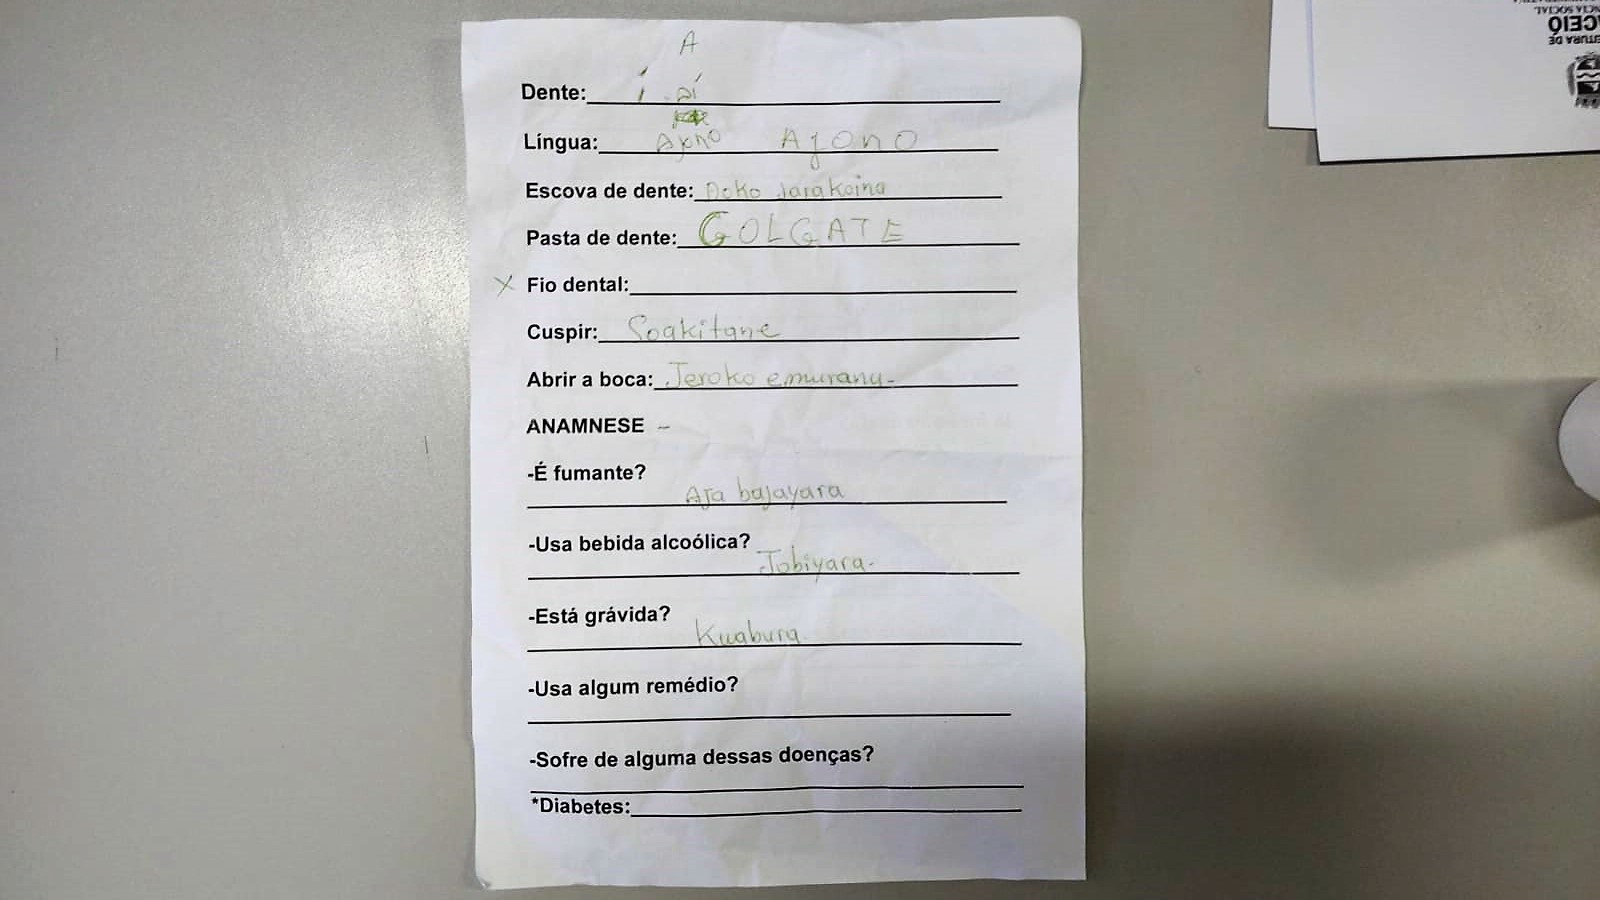 A
Dente: í
Língua: Ajono Ajono
Escova de dente: Doko jarakoina
Pasta de dente: GOLGATE
X Fio dental:
Cuspir: Soakitane
Abrir a boca: Jeroko emuranu-
ANAMNESE -
-É fumante?
Aja bajayara
-Usa bebida alcoólica?
Jobiyara-
-Está grávida?
Kuabura
-Usa algum remédio?
-Sofre de alguma dessas doenças?
*Diabetes: